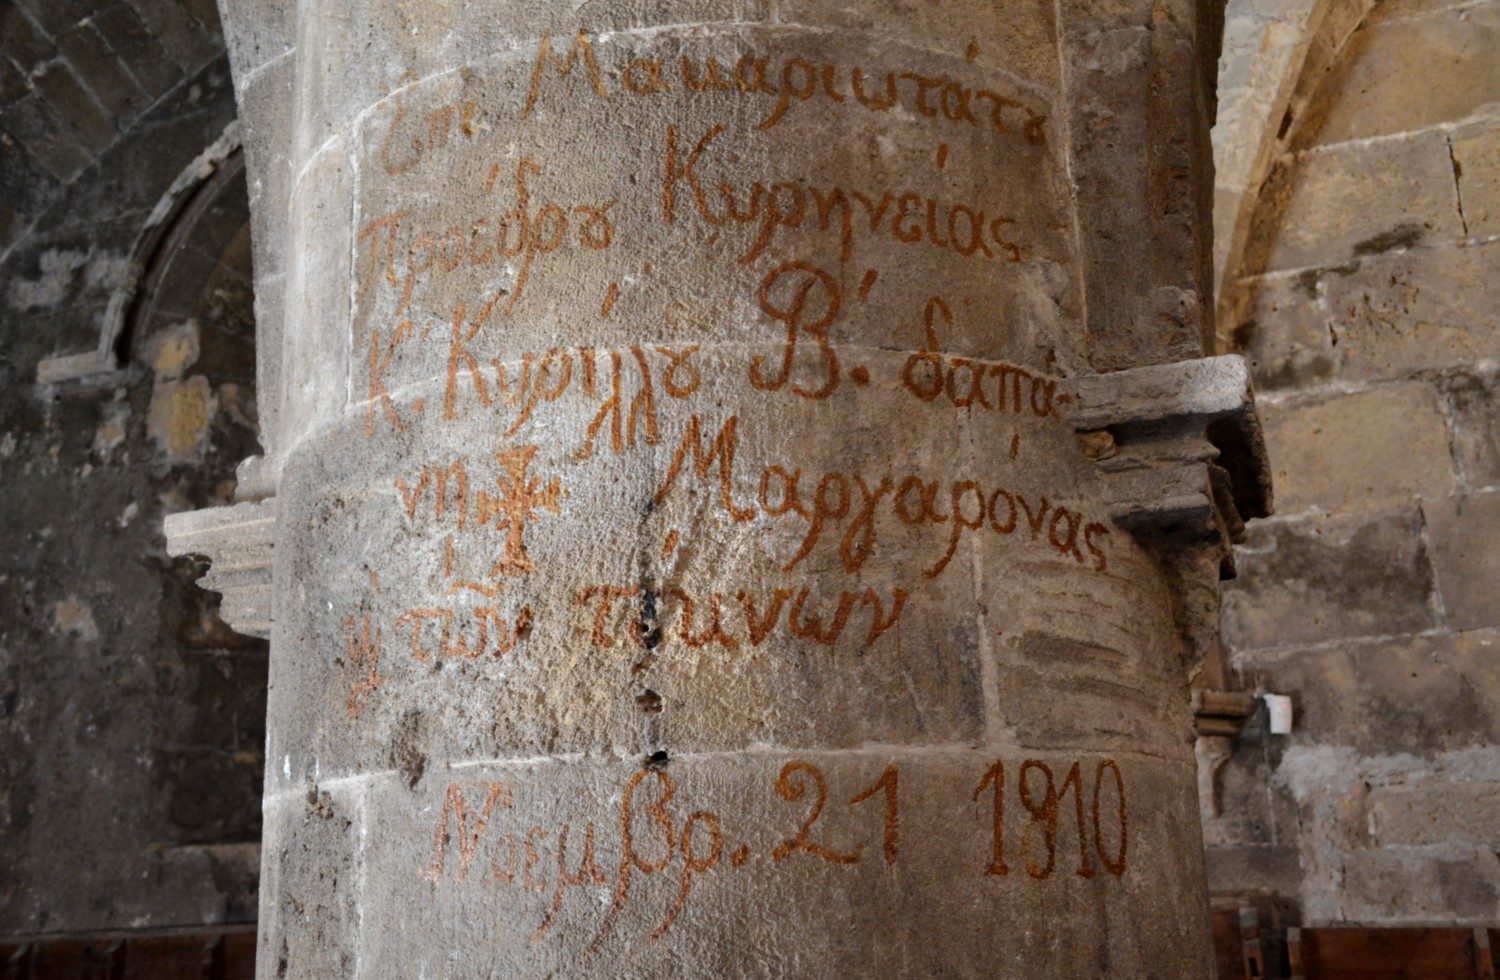 Ἐπὶ Μακαριωτάτȣ
Προέδρȣ Κυρηνείας
Κ. Κυρίλλȣ Β΄. δαπά-
νη Μαργαρόνας
ϗ τῶν τέκνων
Νοεμβρ. 21 1910